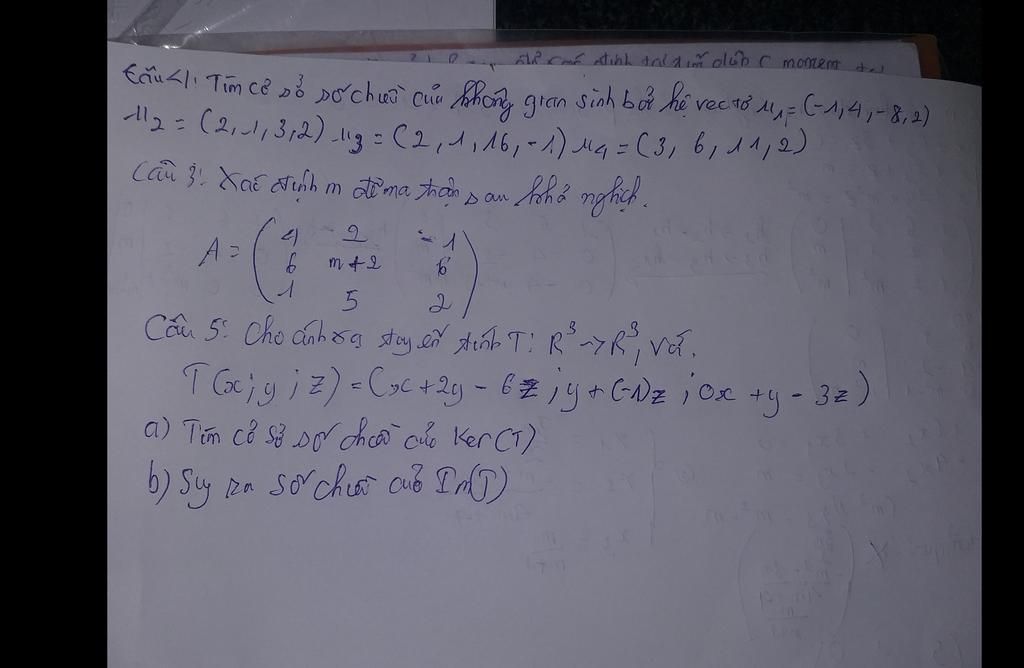 để xác định tại moment
Câu 1: Tìm cơ sở số chiều của không gian sinh bởi hệ vectơ u₁ = (-1, 4, -8, 2)
u₂ = (2, -1, 3, 2) u₃ = (2, 1, 16, -1) u₄ = (3, 6, 11, 2)
Câu 3: Xác định m để ma trận sau khả nghịch.
A = ( 4 2 -1
6 m+2 6
1 5 2 )
Câu 5: Cho ánh xạ tuyến tính T: R³ -> R³, với.
T(x; y; z) = (x + 2y - 6z; y + (-1)z; 0x + y - 3z)
a) Tìm cơ sở số chiều của Ker(T)
b) Suy ra số chiều của Im(T)